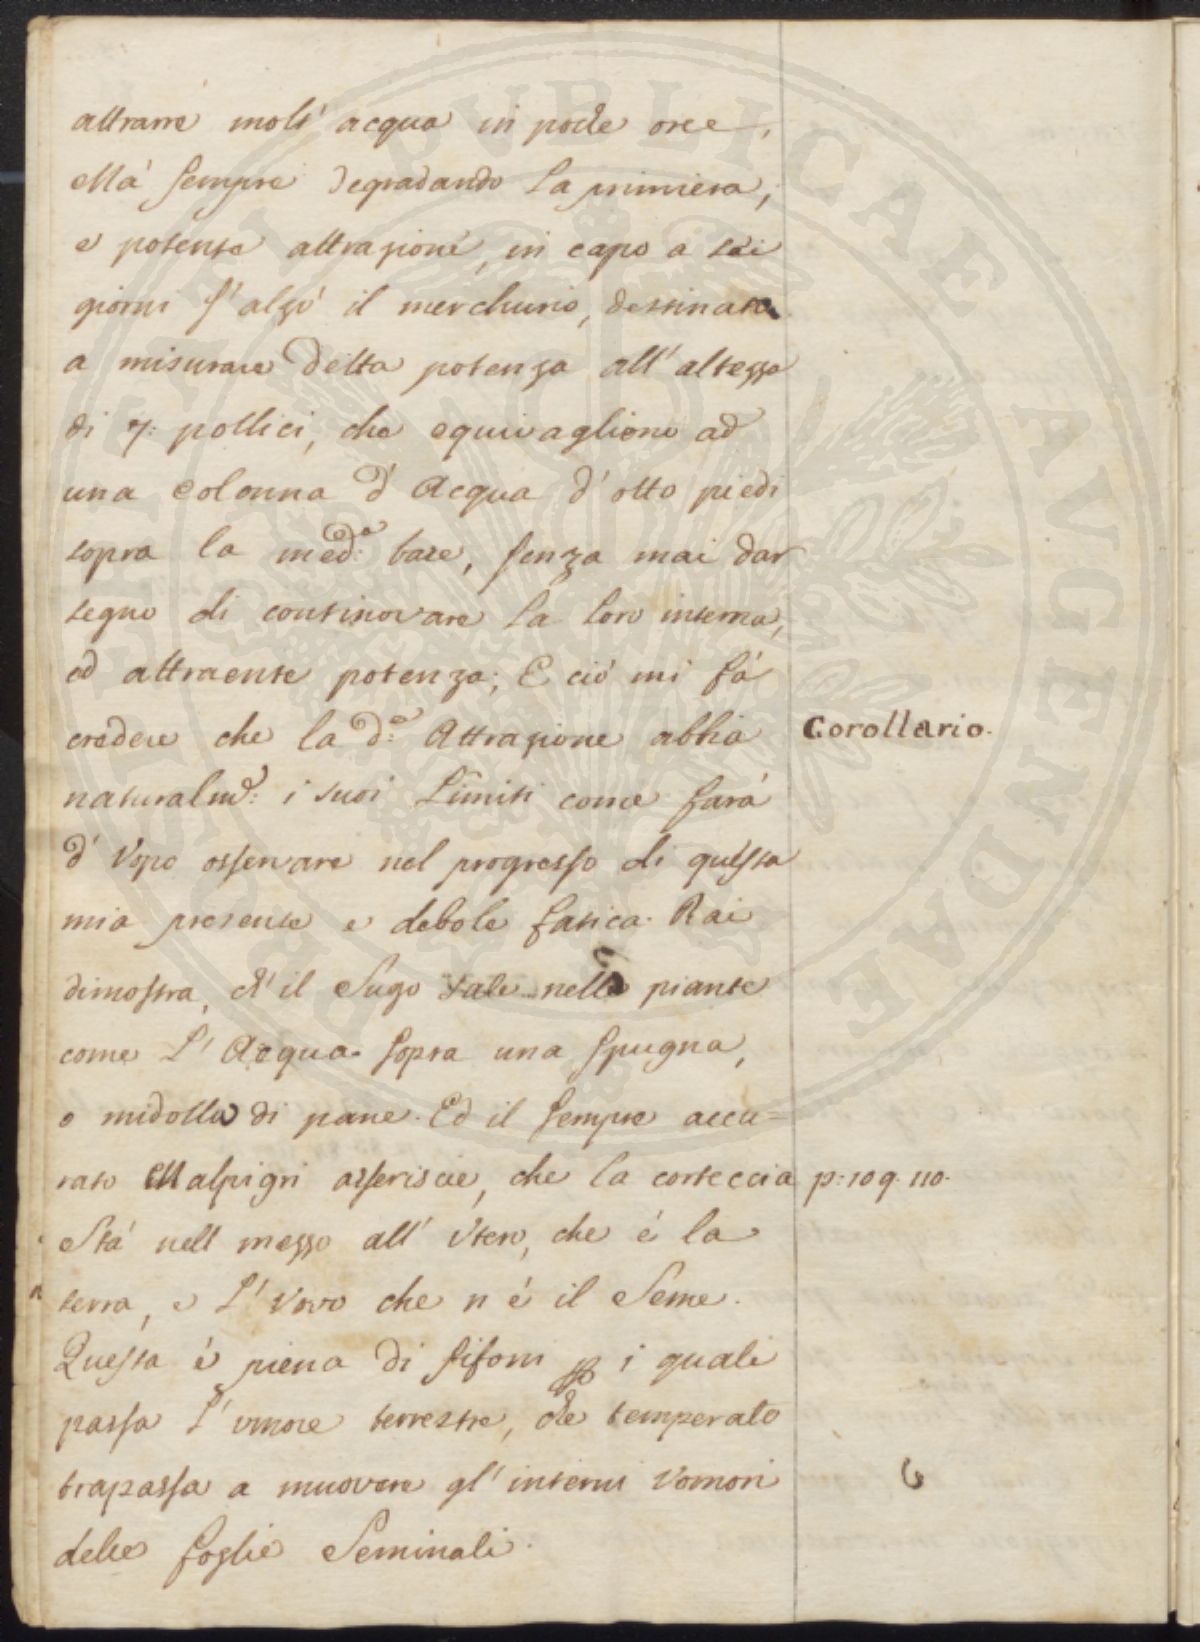 attrarre molt' acqua in poche ore,
Mà sempre degradando la primiera,
e potente attrazione, in capo a sei
giorni s' alzò il merchurio, destinato
a misurare detta potenza all' altezza
di 7: pollici, che equivaglioni ad
una colonna d' Acqua d' otto piedi
sopra la med:a base, senza mai dar
segno di continovare la loro interna,
ed attraente potenza; E ciò mi fà
credere che la d:a Attrazione abbia
Corollario.
naturalm:e i suoi Limiti come farà
d' Vopo osservare nel progresso di questa
mia presente e debole fatica. Rai
dimostra, ch' il Sugo sale nelle piante
come l' Acqua sopra una spugna,
o midolla di pane. Ed il sempre accu=
rato Malpigri asseriscie, che la corteccia
p: 109. 110.
Stà nell mezzo all' Vtero, che è la
terra, e l' Vovo che n' è il Seme.
Questa è piena di sifoni p i quali
passa l' vmore terrestre, che temperato
trapassa a muovere gl' interni Vomori
delle foglie Seminali.